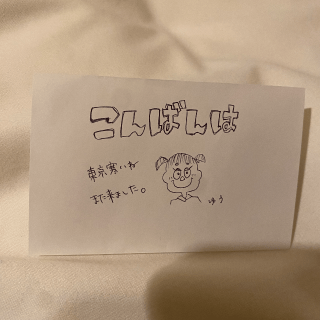 こんばんは
東京寒いね
また来ました。
ゆう